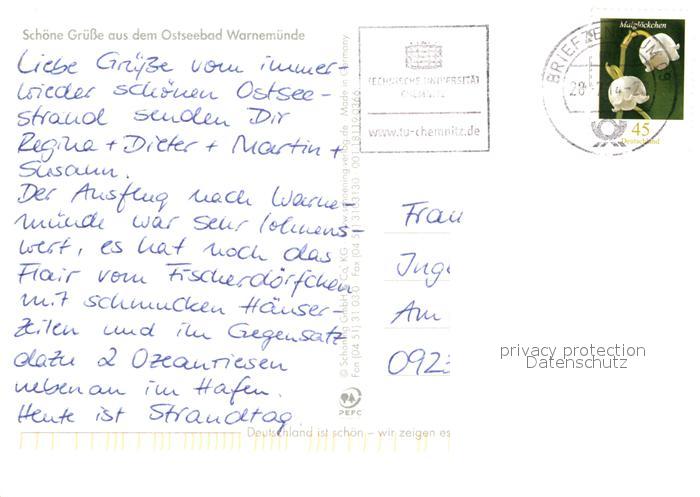 Schöne Grüße aus dem Ostseebad Warnemünde
Liebe Grüße vom immer-
wieder schönen Ostsee-
strand senden Dir
Regina + Dieter + Martin +
Susann.
Der Ausflug nach Warne-
münde war sehr lohnens-
wert, es hat noch das
Flair vom Fischerdörfchen
mit schmucken Häuser-
zeilen und im Gegensatz
dazu 2 Ozeanriesen
nebenan im Hafen.
Heute ist Strandtag.
TECHNISCHE UNIVERSITÄT
CHEMNITZ
www.tu-chemnitz.de
BRIEFZENTRUM 09
Maiglöckchen
45
Deutschland
Frau
Inge
Am
092
privacy protection
Datenschutz
© Schöning GmbH & Co. KG
www.schoening-verlag.de Made in Germany
Fon (04 51) 31 03 0 Fax (04 51) 31 03 30
PEFC
Deutschland ist schön – wir zeigen es